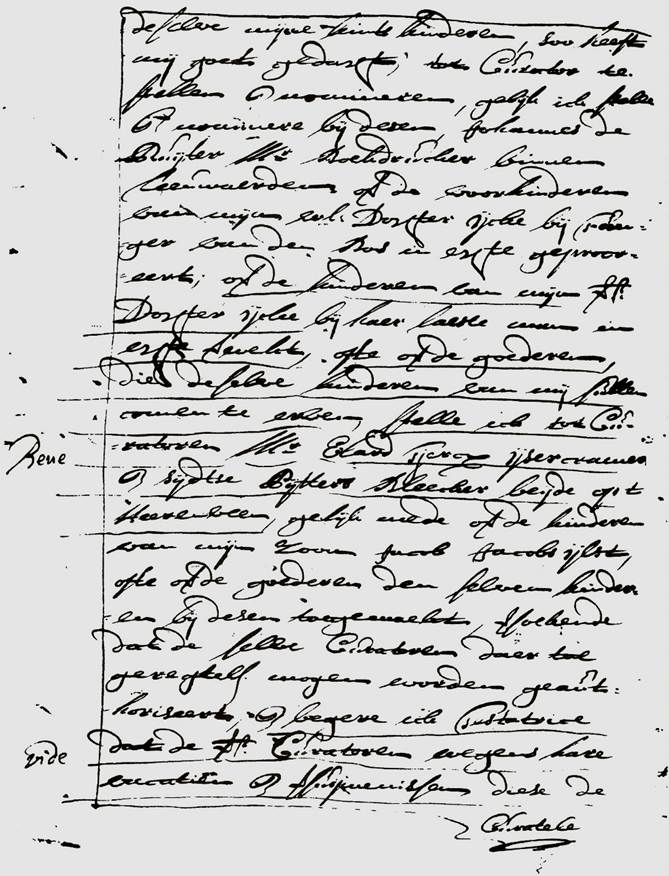 deselve mijne kints kinderen, soo heeft
mij goets gedacht, tot Curator te
stellen & nomineren, gelijk ick stelle
& nominere bij desen, Johannes de
Ruijter Mr. Boekdrucker binnen
Leeuwaerden, op de voorkinderen
van mijn Dogter ijcke bij
ger van den Bos in egte geproor-
eert, op de kinderen van mijn
Dogter ijcke bij haer laeste man in
egte verwekt, ofte op de goederen,
die deselve kinderen van mij sullen
comen te erven, stelle ick tot Cu-
ratoren Mr. Elard ijsercramer
& sijdtse Bleecker beijde op 't
Heerenveen, gelijk mede op de kinderen
van mijn zoon Jacob Jacobs ijlst,
ofte op de goederen den selven kinder-
en bij desen toegemaekt, versoekende
dat de selve Curatoren daer toe
geregtelf. mogen worden geaut-
horiseert, & begere ick Testatrice
dat de Curatoren wegens hare
vacatien & diese de
Curatele
René
vide